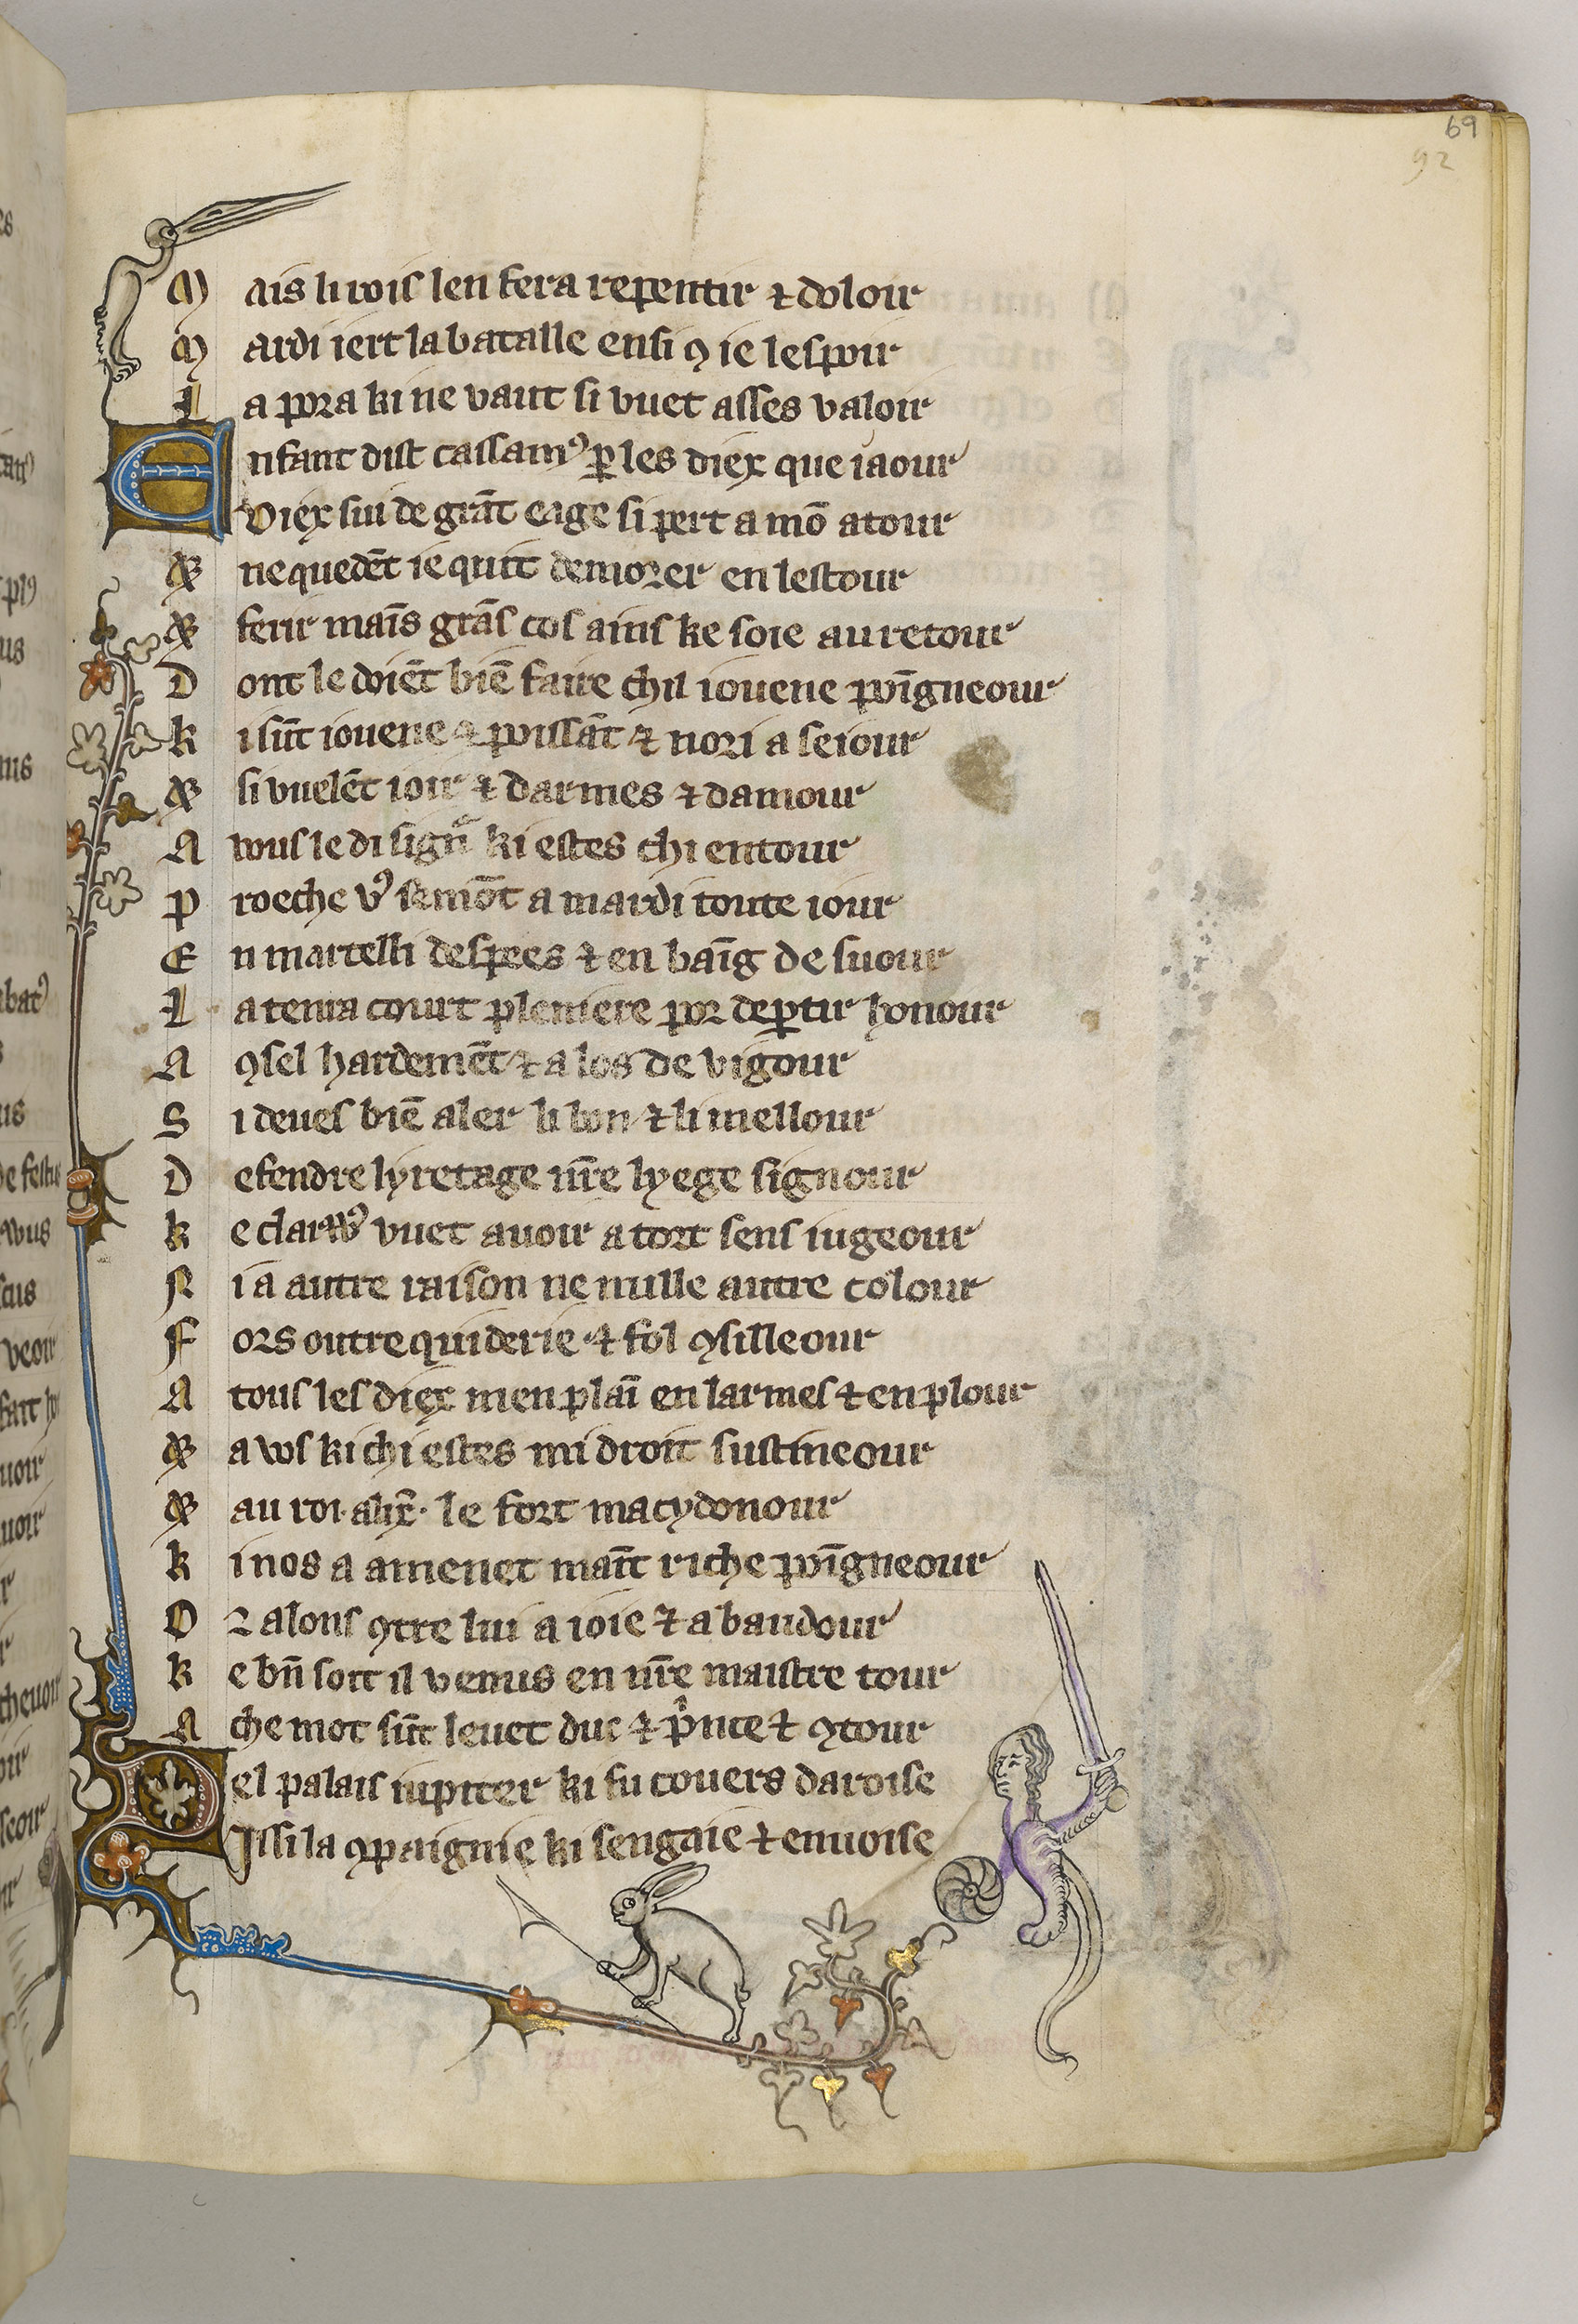 69
92
Mais li rois len fera repentir ⁊ doloir
Mardi iert la batalle ensi ꝯ ie lespoir
La pora ki ne vaut si vuet asses valoir
Enfant dist cassamꝰ ꝑ les diex que iaour
Viex sui de grāt eage si pert a mō atour
Et nequedēt ie quit demorer en lestour
Et ferir maīs grās cos ains ke soie au retour
Dont le doiēt biē faire chil iouene poīgneour
ki sūt iouene ⁊ poissāt ⁊ nori a seiour
Et si vuelēt ioir ⁊ darmes ⁊ damour
A vous le di sign̄ ki estes chi entour
proeche vꝰ semōt a mardi toute iour
En martelli despees ⁊ en baīg de suour
La tenra court pleniere por deꝑtir honour
A ꝯsel hardemēt ⁊ a los de vigour
Si deues biē aler li bon ⁊ li mellour
Defendre lyretage nr̄e lyege signour
ke clarꝰ vuet auoir a tort sens iugeour
Ni a autre raison ne nulle autre colour
Fors outrequiderie ⁊ fol ꝯsilleour
A tous les diex men plaī en larmes ⁊ en plour
Et a vos ki chi estes mi droit sustineour
Et au roi · alix̄ · le fort macydonour
ki nos a amenet maīt riche poīgneour
Or alons ꝯtre lui a ioie ⁊ a baudour
ke bn̄ soit il venus en nr̄e maistre tour
A che mot sūt leuet duc ⁊ pͥnce ⁊ ꝯtour
Del palais iupiter ki fu couers daroise
Issi la ꝯpaignie ki sengaie ⁊ enuoise